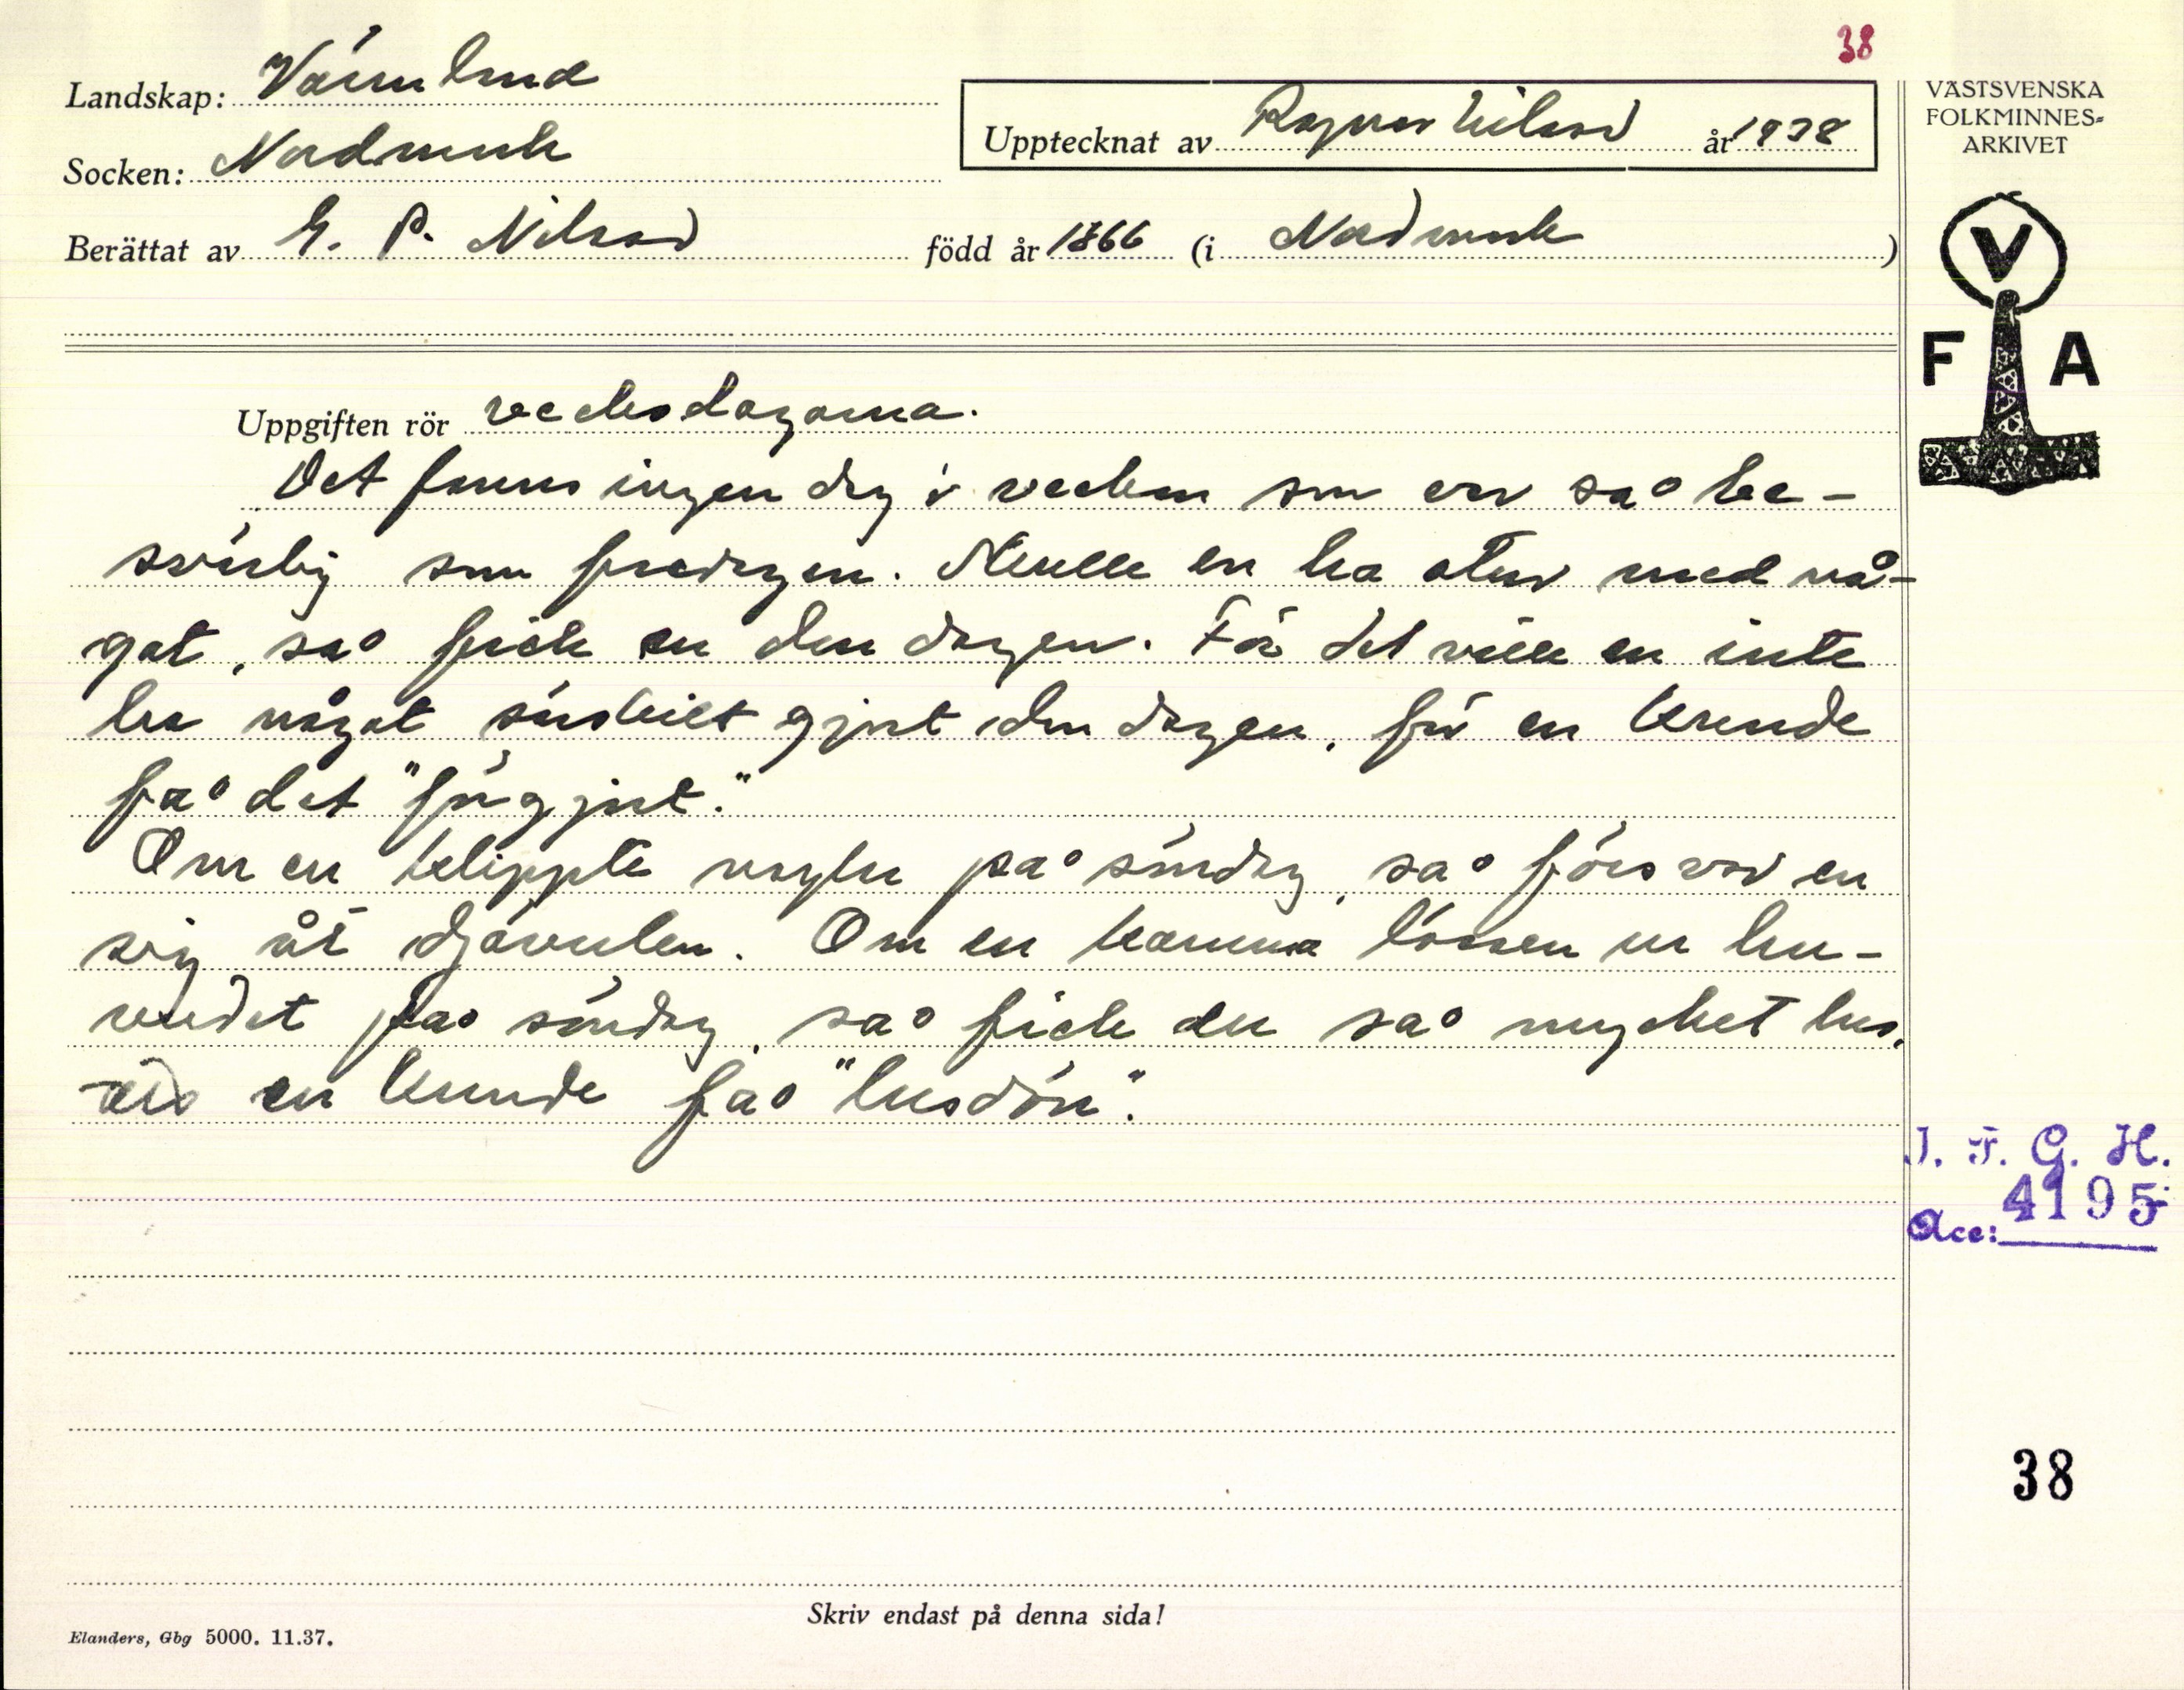 38
Landskap: Värmland
Socken: Nordmark
Berättat av E. P. Nilsson född år 1866 (i Nordmark)
Upptecknat av Ragnar Nilsson år 1938
VÄSTSVENSKA
FOLKMINNES-
ARKIVET
V
F A
Uppgiften rör veckodagarna.
Det fanns ingen dag i veckan som var så be-
svärlig som fredagen. Skulle en ha otur med nå-
got, så fick en den dagen. För det ville en inte
ha något särskilt gjort den dagen, för en kunde
få det "förgjort."
Om en klippte naglar på söndag, så försvor en
sig åt djävulen. Om en kamma lössen ur hu-
vudet på söndag, så fick en så mycket lus,
att en kunde få "lusdön".
J. F. G. H.
Acc: 4195
38
Skriv endast på denna sida!
Elanders, Gbg 5000. 11.37.